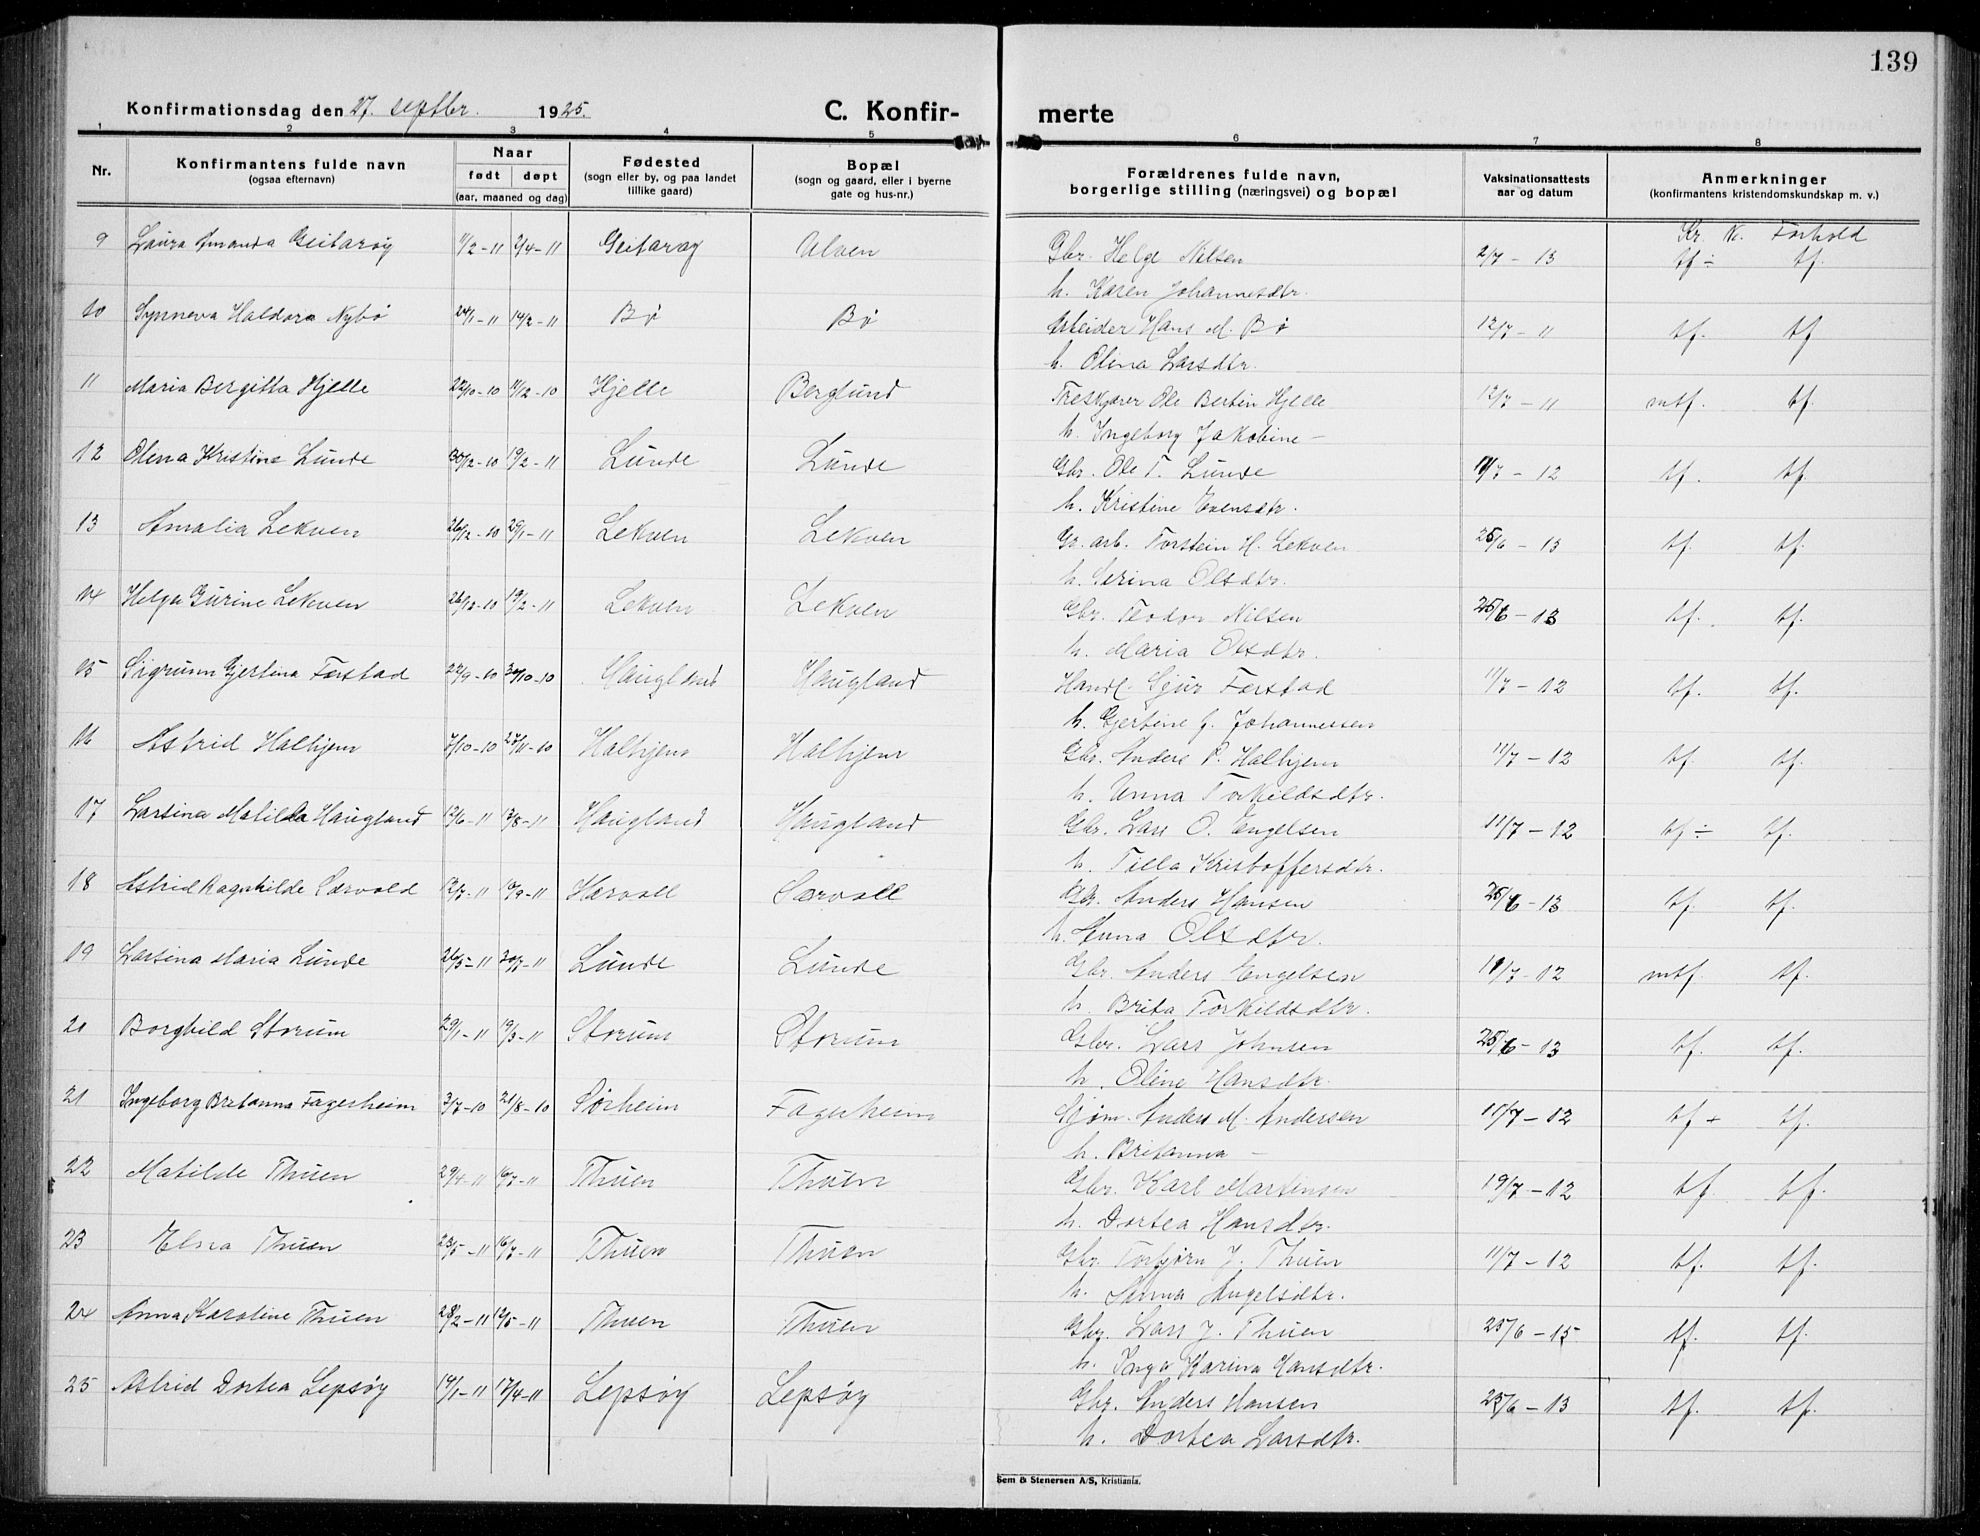 139
Konfirmationsdag den 27. septbr. 1925.
C. Konfir-
merte
1 2 3 4 5 6 7 8
Nr.
Konfirmantens fulde navn
(ogsaa efternavn)
Naar
født døpt
(aar, maaned og dag)
Fødested
(sogn eller by, og paa landet
tillike gaard)
Bopæl
(sogn og gaard, eller i byerne
gate og hus-nr.)
Forældrenes fulde navn,
borgerlige stilling (næringsvei) og bopæl
Vaksinationsattests
aar og datum
Anmerkninger
(konfirmantens kristendomskundskap m. v.)
Kr. K. Forhold
9 Laura Amanda Geitarøy 11/2-11 2/4-11 Geitarøy Ulven Gbr. Helge Nilsen 2/7-13 tf ÷ tf.
h. Karen Johannesdtr.
10 Synneva Haldora Nybø 24/1-11 14/2-11 Bø Bø Arbeider Hans M. Bø 12/7-11 tf. tf
h. Olina Larsdtr.
11 Maria Bergitta Hjelle 22/10-10 11/12-10 Hjelle Berglund Treskjærer Ole Bertin Hjelle 12/7-11 mtf. tf.
h. Ingeborg Jakobine -
12 Olena Kristine Lunde 30/12-10 19/2-11 Lunde Lunde Gbr. Ole T. Lunde 11/7-12 tf. tf.
h. Kristine Evensdtr.
13 Amalia Lekven 26/12-10 29/1-11 Lekven Lekven Gr. arb. Torstein H. Lekven 25/6-13 tf. tf.
h. Serina Olsdtr.
14 Helga Gurine Lekven 26/12-10 19/2-11 Lekven Lekven Gbr. Teodor Nilsen 25/6-13 tf. tf.
h. Maria Olsdtr.
15 Sigrunn Gjertina Forstad 22/9-10 30/10-10 Haugland Haugland Handl. Sjur Forstad 11/7-12 tf. tf.
h. Gjertine f. Johannessen
16 Astrid Halhjem 7/10-10 27/11-10 Halhjem Halhjem Gbr. Anders P. Halhjem 11/7-12 tf. tf.
h. Anna Torkildsdtr.
17 Larsina Matilda Haugland 12/6-11 13/8-11 Haugland Haugland Gbr. Lars O. Engelsen 11/7-12 tf ÷ tf.
h. Tilla Kristoffersdtr.
18 Astrid Ragnhilde Særvold 12/7-11 10/9-11 Særvoll Særvoll Gbr. Anders Hansen 25/6-13 tf. tf.
h. Anna Olsdtr.
19 Larsina Maria Lunde 26/5-11 30/7-11 Lunde Lunde Gbr. Anders Engelsen 11/7-12 mtf. tf.
h. Brita Torkildsdtr.
21 Borghild Storum 29/1-11 19/3-11 Storum Storum Gbr. Lars Johnsen 25/6-13 tf. tf.
h. Oline Hansdtr.
21 Ingeborg Britanna Fagerheim 3/7-10 21/8-10 Sørheim Fagerheim Sjøm. Anders M. Andersen 11/7-12 tf ÷ tf.
h. Britanna -
22 Matilde Thuen 29/4-11 16/7-11 Thuen Thuen Gbr. Karl Martinsen 19/7-12 tf. tf.
h. Dortea Hansdtr.
23 Elna Thuen 23/5-11 16/7-11 Thuen Thuen Gbr. Torbjørn J. Thuen 11/7-12 tf. tf.
h. Anna Engelsdtr.
24 Anna Karoline Thuen 28/2-11 12/5-11 Thuen Thuen Gbr. Lars J. Thuen 25/6-15 tf. tf.
h. Inga Karina Hansdtr.
25 Astrid Dortea Lepsøy 14/1-11 17/4-11 Lepsøy Lepsøy Gbr. Anders Hansen 23/6-13 tf. tf.
h. Dortea Larsdtr.
Sem & Stenersen A/S, Kristiania.